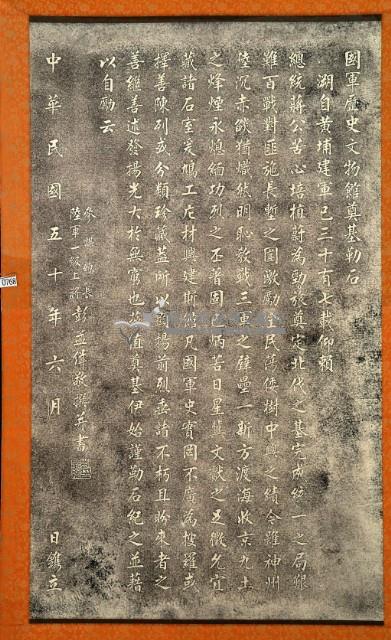 國軍歷史文物館奠基勒石
溯自黃埔建軍已三十有七載仰賴
總統蔣公苦心培植蔚為勁旅奠定北伐之基完成統一之局艱
難百戰對匪施長塹之圍敵勵全民蕩倭樹中興之績今雖神州
陸沉赤燄猶熾然明恥教戰三軍之壁壘一新方渡海收京九土
之烽煙永熄緬功烈之丕著固已炳若日星冀文獻之足徵允宜
藏諸石室爰鳩工庀材興建斯館凡國軍史實罔不廣為搜羅或
擇善陳列或分類珍藏蓋所以顯揚前烈垂諸不朽且昐來者之
善繼善述發揚光大於無窮也茲值奠基伊始謹勒石紀之並藉
以自勵云
參謀總長
陸軍一級上將 彭孟緝敬撰并書
中華民國五十年六月 日鐫立
0768